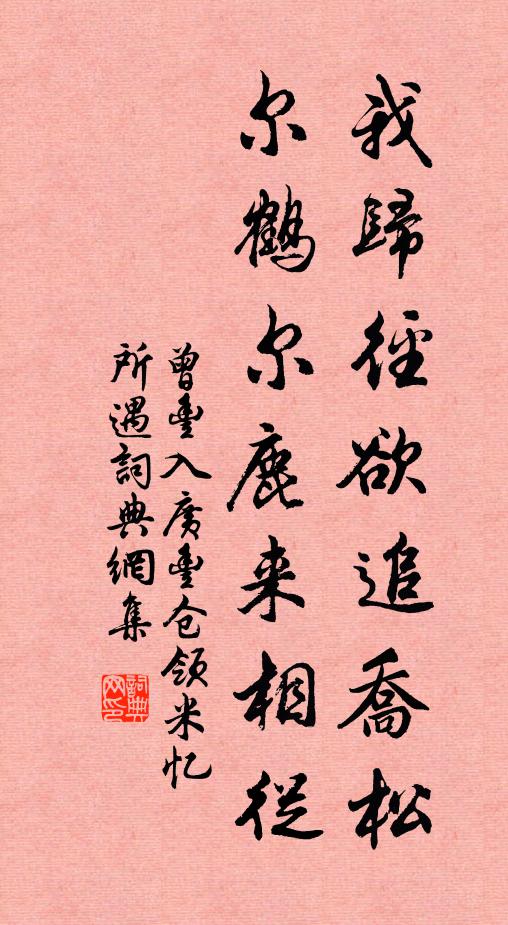 我歸徑欲追喬松
尔鶴尔鹿来相從
曾豊入廣豊仓領米忆
所遇詞典網集
詞典网印